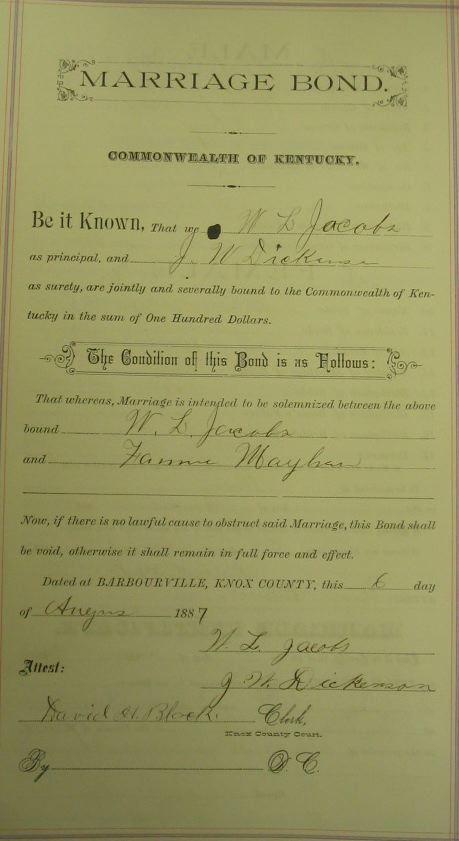 MARRIAGE BOND.
COMMONWEALTH OF KENTUCKY.
Be it Known, That we W L Jacobs
as principal, and J. W Dickenson
as surety, are jointly and severally bound to the Commonwealth of Ken-
tucky in the sum of One Hundred Dollars.
The Condition of this Bond is as Follows:
That whereas, Marriage is intended to be solemnized between the above
bound W. L. Jacobs
and Fannie
Now, if there is no lawful cause to obstruct said Marriage, this Bond shall
be void, otherwise it shall remain in full force and effect.
Dated at BARBOURVILLE, KNOX COUNTY, this 6 day
of 1887
W. L. Jacobs
Attest:
J W. Dickenson
David H. Block Clerk,
Knox County Court.
By D. C.